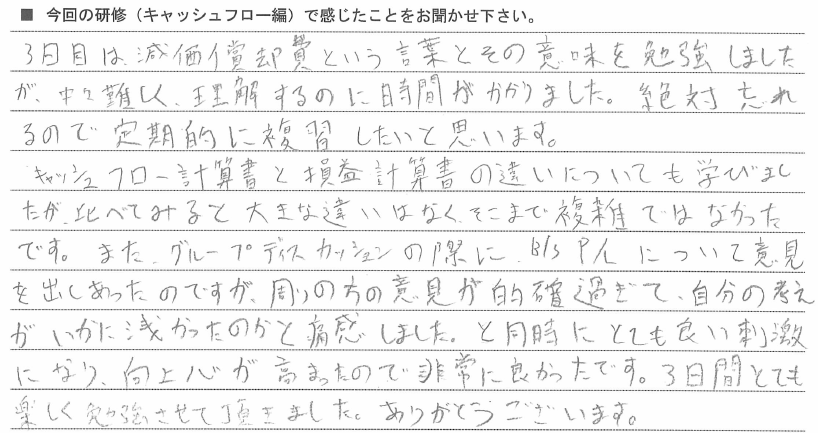 ■ 今回の研修（キャッシュフロー編）で感じたことをお聞かせ下さい。
3日目は、減価償却費という言葉とその意味を勉強しました
が、中々難しく、理解するのに時間がかかりました。絶対忘れ
るので定期的に複習したいと思います。
キャッシュフロー計算書と損益計算書の違いについても学びまし
たが、比べてみると大きな違いはなく、そこまで複雑ではなかった
です。また、グループディスカッションの際に、B/S P/Lについて意見
を出しあったのですが、周りの方の意見が的確過ぎて、自分の考え
がいかに浅かったのかと痛感しました。と同時にとても良い刺激
になり、向上心が高まったので非常に良かったです。3日間とても
楽しく勉強させて頂きました。ありがとうございます。